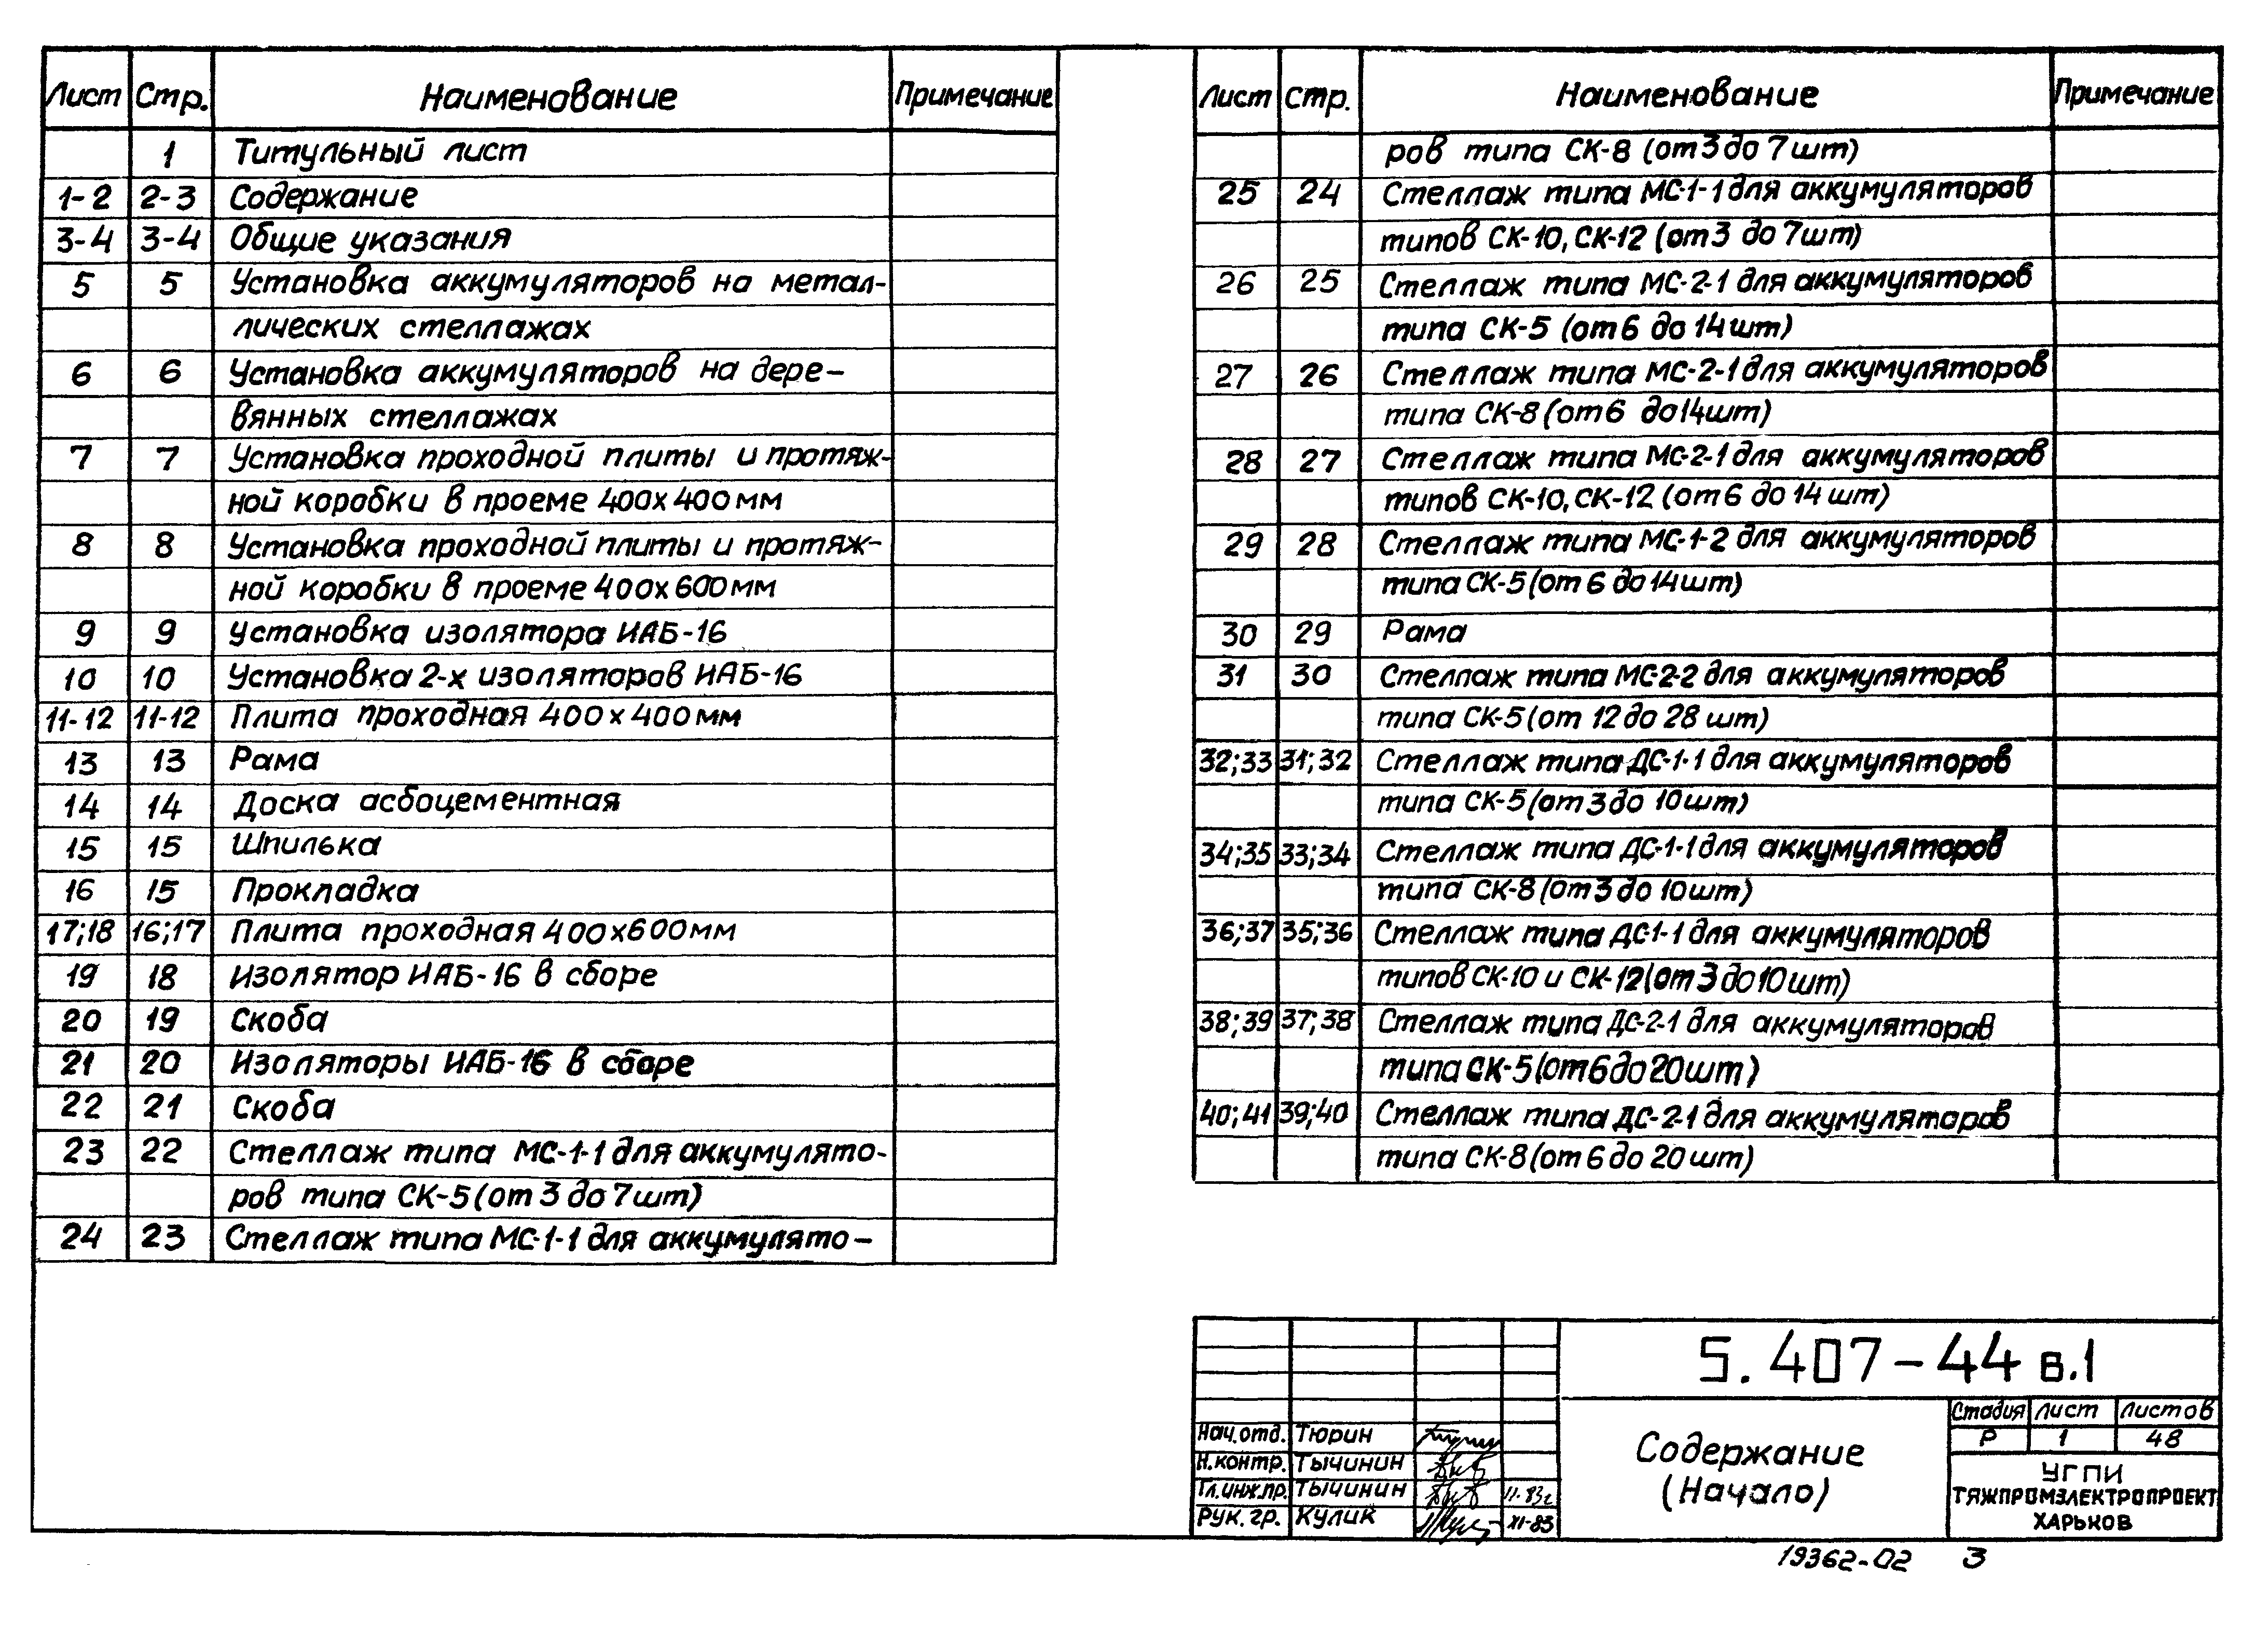 Лист Стр. Наименование Примечание
1 Титульный лист
1-2 2-3 Содержание
3-4 3-4 Общие указания
5 5 Установка аккумуляторов на метал-
лических стеллажах
6 6 Установка аккумуляторов на дере-
вянных стеллажах
7 7 Установка проходной плиты и протяж-
ной коробки в проеме 400х400мм
8 8 Установка проходной плиты и протяж-
ной коробки в проеме 400х600мм
9 9 Установка изолятора ИАБ-16
10 10 Установка 2-х изоляторов ИАБ-16
11-12 11-12 Плита проходная 400х400мм
13 13 Рама
14 14 Доска асбоцементная
15 15 Шпилька
16 15 Прокладка
17;18 16;17 Плита проходная 400х600мм
19 18 Изолятор ИАБ-16 в сборе
20 19 Скоба
21 20 Изоляторы ИАБ-16 в сборе
22 21 Скоба
23 22 Стеллаж типа МС-1-1 для аккумулято-
ров типа СК-5 (от 3 до 7шт)
24 23 Стеллаж типа МС-1-1 для аккумулято-
Лист Стр. Наименование Примечание
ров типа СК-8 (от 3 до 7шт)
25 24 Стеллаж типа МС-1-1 для аккумуляторов
типов СК-10, СК-12 (от 3 до 7шт)
26 25 Стеллаж типа МС-2-1 для аккумуляторов
типа СК-5 (от 6 до 14шт)
27 26 Стеллаж типа МС-2-1 для аккумуляторов
типа СК-8 (от 6 до 14шт)
28 27 Стеллаж типа МС-2-1 для аккумуляторов
типов СК-10, СК-12 (от 6 до 14 шт)
29 28 Стеллаж типа МС-1-2 для аккумуляторов
типа СК-5 (от 6 до 14шт)
30 29 Рама
31 30 Стеллаж типа МС-2-2 для аккумуляторов
типа СК-5 (от 12 до 28 шт)
32;33 31;32 Стеллаж типа ДС-1-1 для аккумуляторов
типа СК-5 (от 3 до 10шт)
34;35 33;34 Стеллаж типа ДС-1-1 для аккумуляторов
типа СК-8 (от 3 до 10шт)
36;37 35;36 Стеллаж типа ДС-1-1 для аккумуляторов
типов СК-10 и СК-12 (от 3 до 10шт)
38;39 37;38 Стеллаж типа ДС-2-1 для аккумуляторов
типа СК-5 (от 6 до 20шт)
40;41 39;40 Стеллаж типа ДС-2-1 для аккумуляторов
типа СК-8 (от 6 до 20шт)
5.407-44 в.1
Нач.отд. Тюрин
Н.контр. Тычинин
Гл.инж.пр. Тычинин 11.83г
Рук. гр. Кулик XI-83
Содержание
(Начало)
Стадия Лист Листов
Р 1 48
УГПИ
ТЯЖПРОМЭЛЕКТРОПРОЕКТ
ХАРЬКОВ
19362-02 3